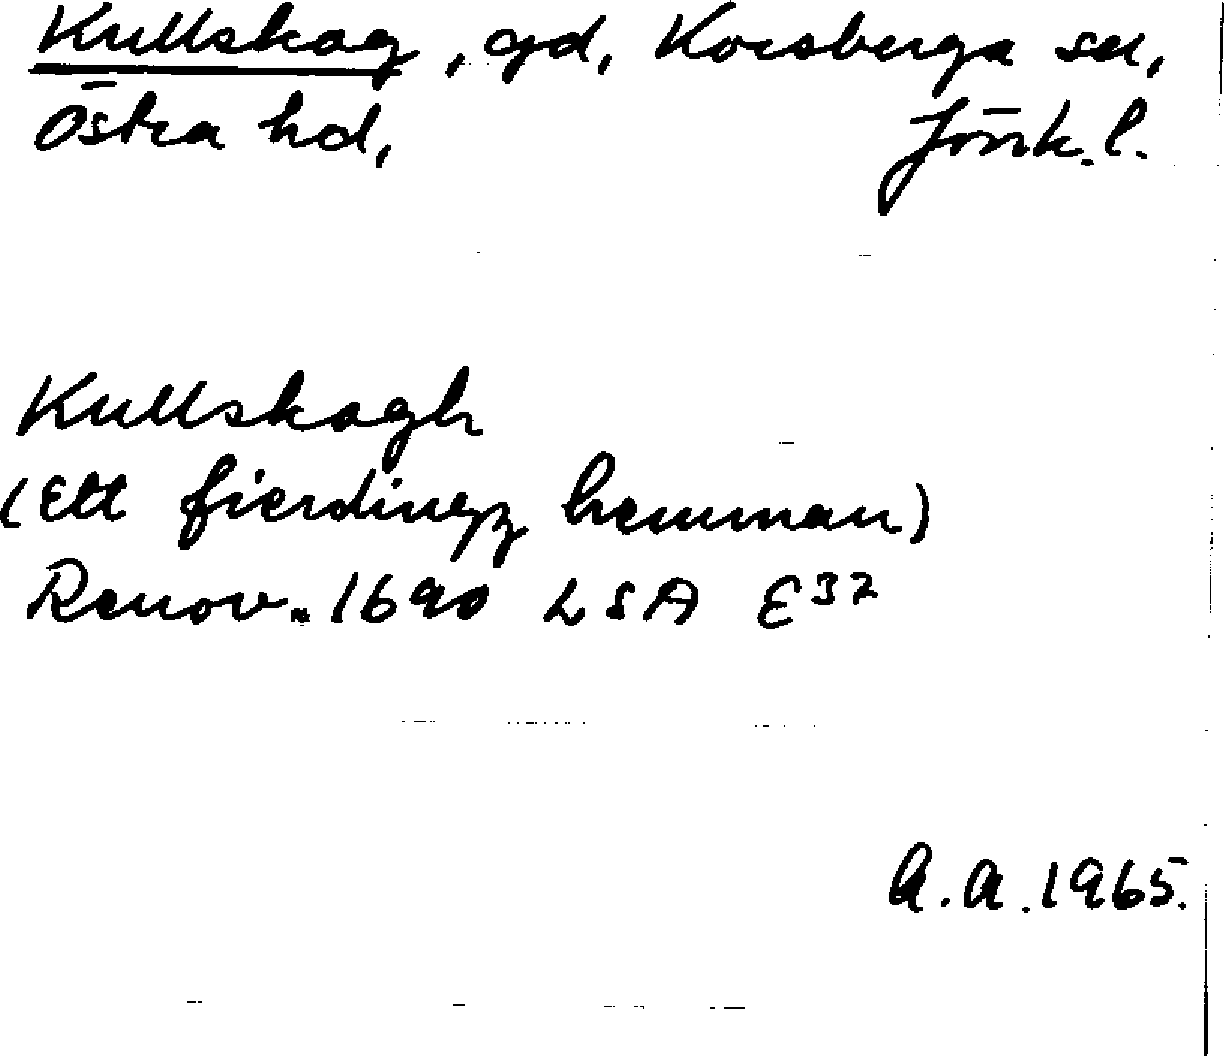 Kullskog, gd, Korsberga sn,
Östra hd, Jönk. l.
Kullskogh
(Ett fierdingz hemman)
Renov. 1690 LSA E32
A.A. 1965.